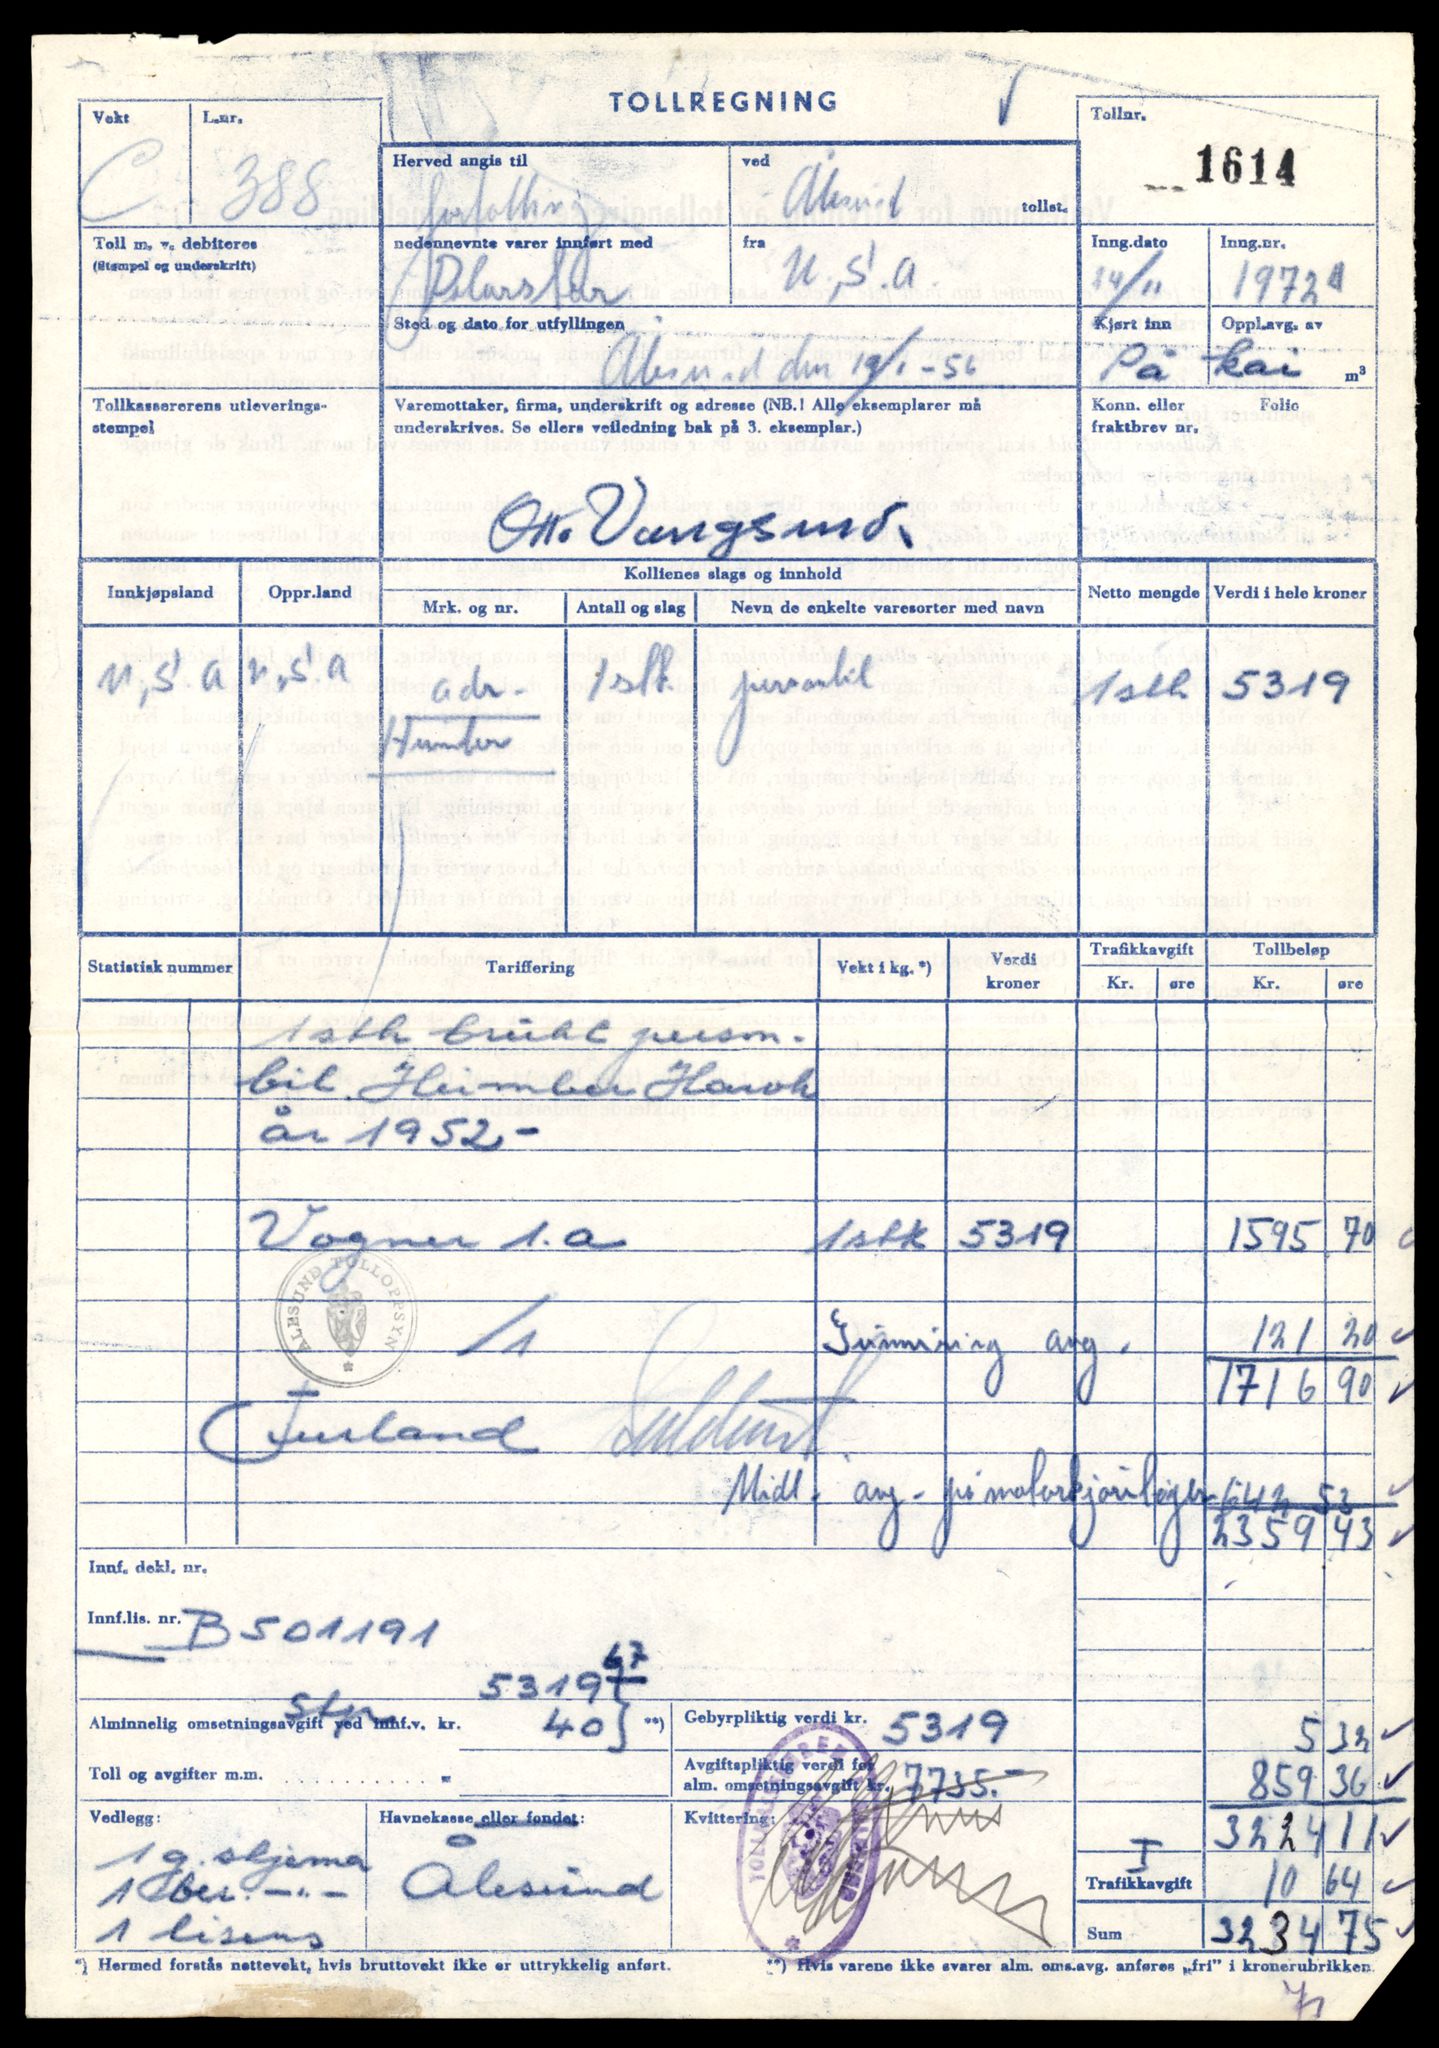 TOLLREGNING
Vekt
C
L.nr.
388
Herved angis til
fortolling
ved
Ålesund
tollst.
Tollnr.
1614
Toll m. v. debiteres
(Stempel og underskrift)
nedennevnte varer innført med
Polarstar
fra
U.S.A
Inng.dato
Inng.nr.
24/11
1972
Sted og dato for utfyllingen
Ålesund den 19/1-56
Kjørt inn
Oppl.avg. av
På kai
m³
Tollkassererens utleverings-
stempel
Varemottaker, firma, underskrift og adresse (NB.! Alle eksemplarer må
underskrives. Se ellers veiledning bak på 3. eksemplar.)
Konn. eller
fraktbrev nr.
Folio
Otto Vangsund.
Innkjøpsland
Oppr.land
Kollienes slags og innhold
Mrk. og nr.
Antall og slag
Nevn de enkelte varesorter med navn
Netto mengde
Verdi i hele kroner
U,S.A U,S.A adr 1 stk. personbil 1 stk 5319
Humber
Statistisk nummer
Tariffering
Vekt i kg. *)
Verdi
kroner
Trafikkavgift
Kr. øre
Tollbeløp
Kr. øre
1 stk brukt person-
bil Humber Hawk
år 1952-
Vogner 1.a 1 stk 5319 1595 70
ÅLESUND TOLLOPPSYN
/1
Gummi avg. 121 20
1716 90
Midl. avg. på motorkjøretøyer 642 53
2359 43
Innf. dekl. nr.
Innf.lis. nr. B 501191
Alminnelig omsetningsavgift ved innf.v. kr.
5319 67
40
**)
Gebyrpliktig verdi kr. 5319
532
Toll og avgifter m.m. . . . . . . . . . . „
Avgiftspliktig verdi for
alm. omsetningsavgift kr. 7735.-
859 36
Vedlegg:
1 g. skjema
1 ber. -"-
1 lisens
Havnekasse eller fondet:
Ålesund
Kvittering:
TOLLKASSEREREN
3224 11
Trafikkavgift
10 64
Sum
3234 75
*) Hermed forstås nettevekt, hvis bruttovekt ikke er uttrykkelig anført.
**) Hvis varene ikke svarer alm. oms.avg. anføres „fri” i kronerubrikken.